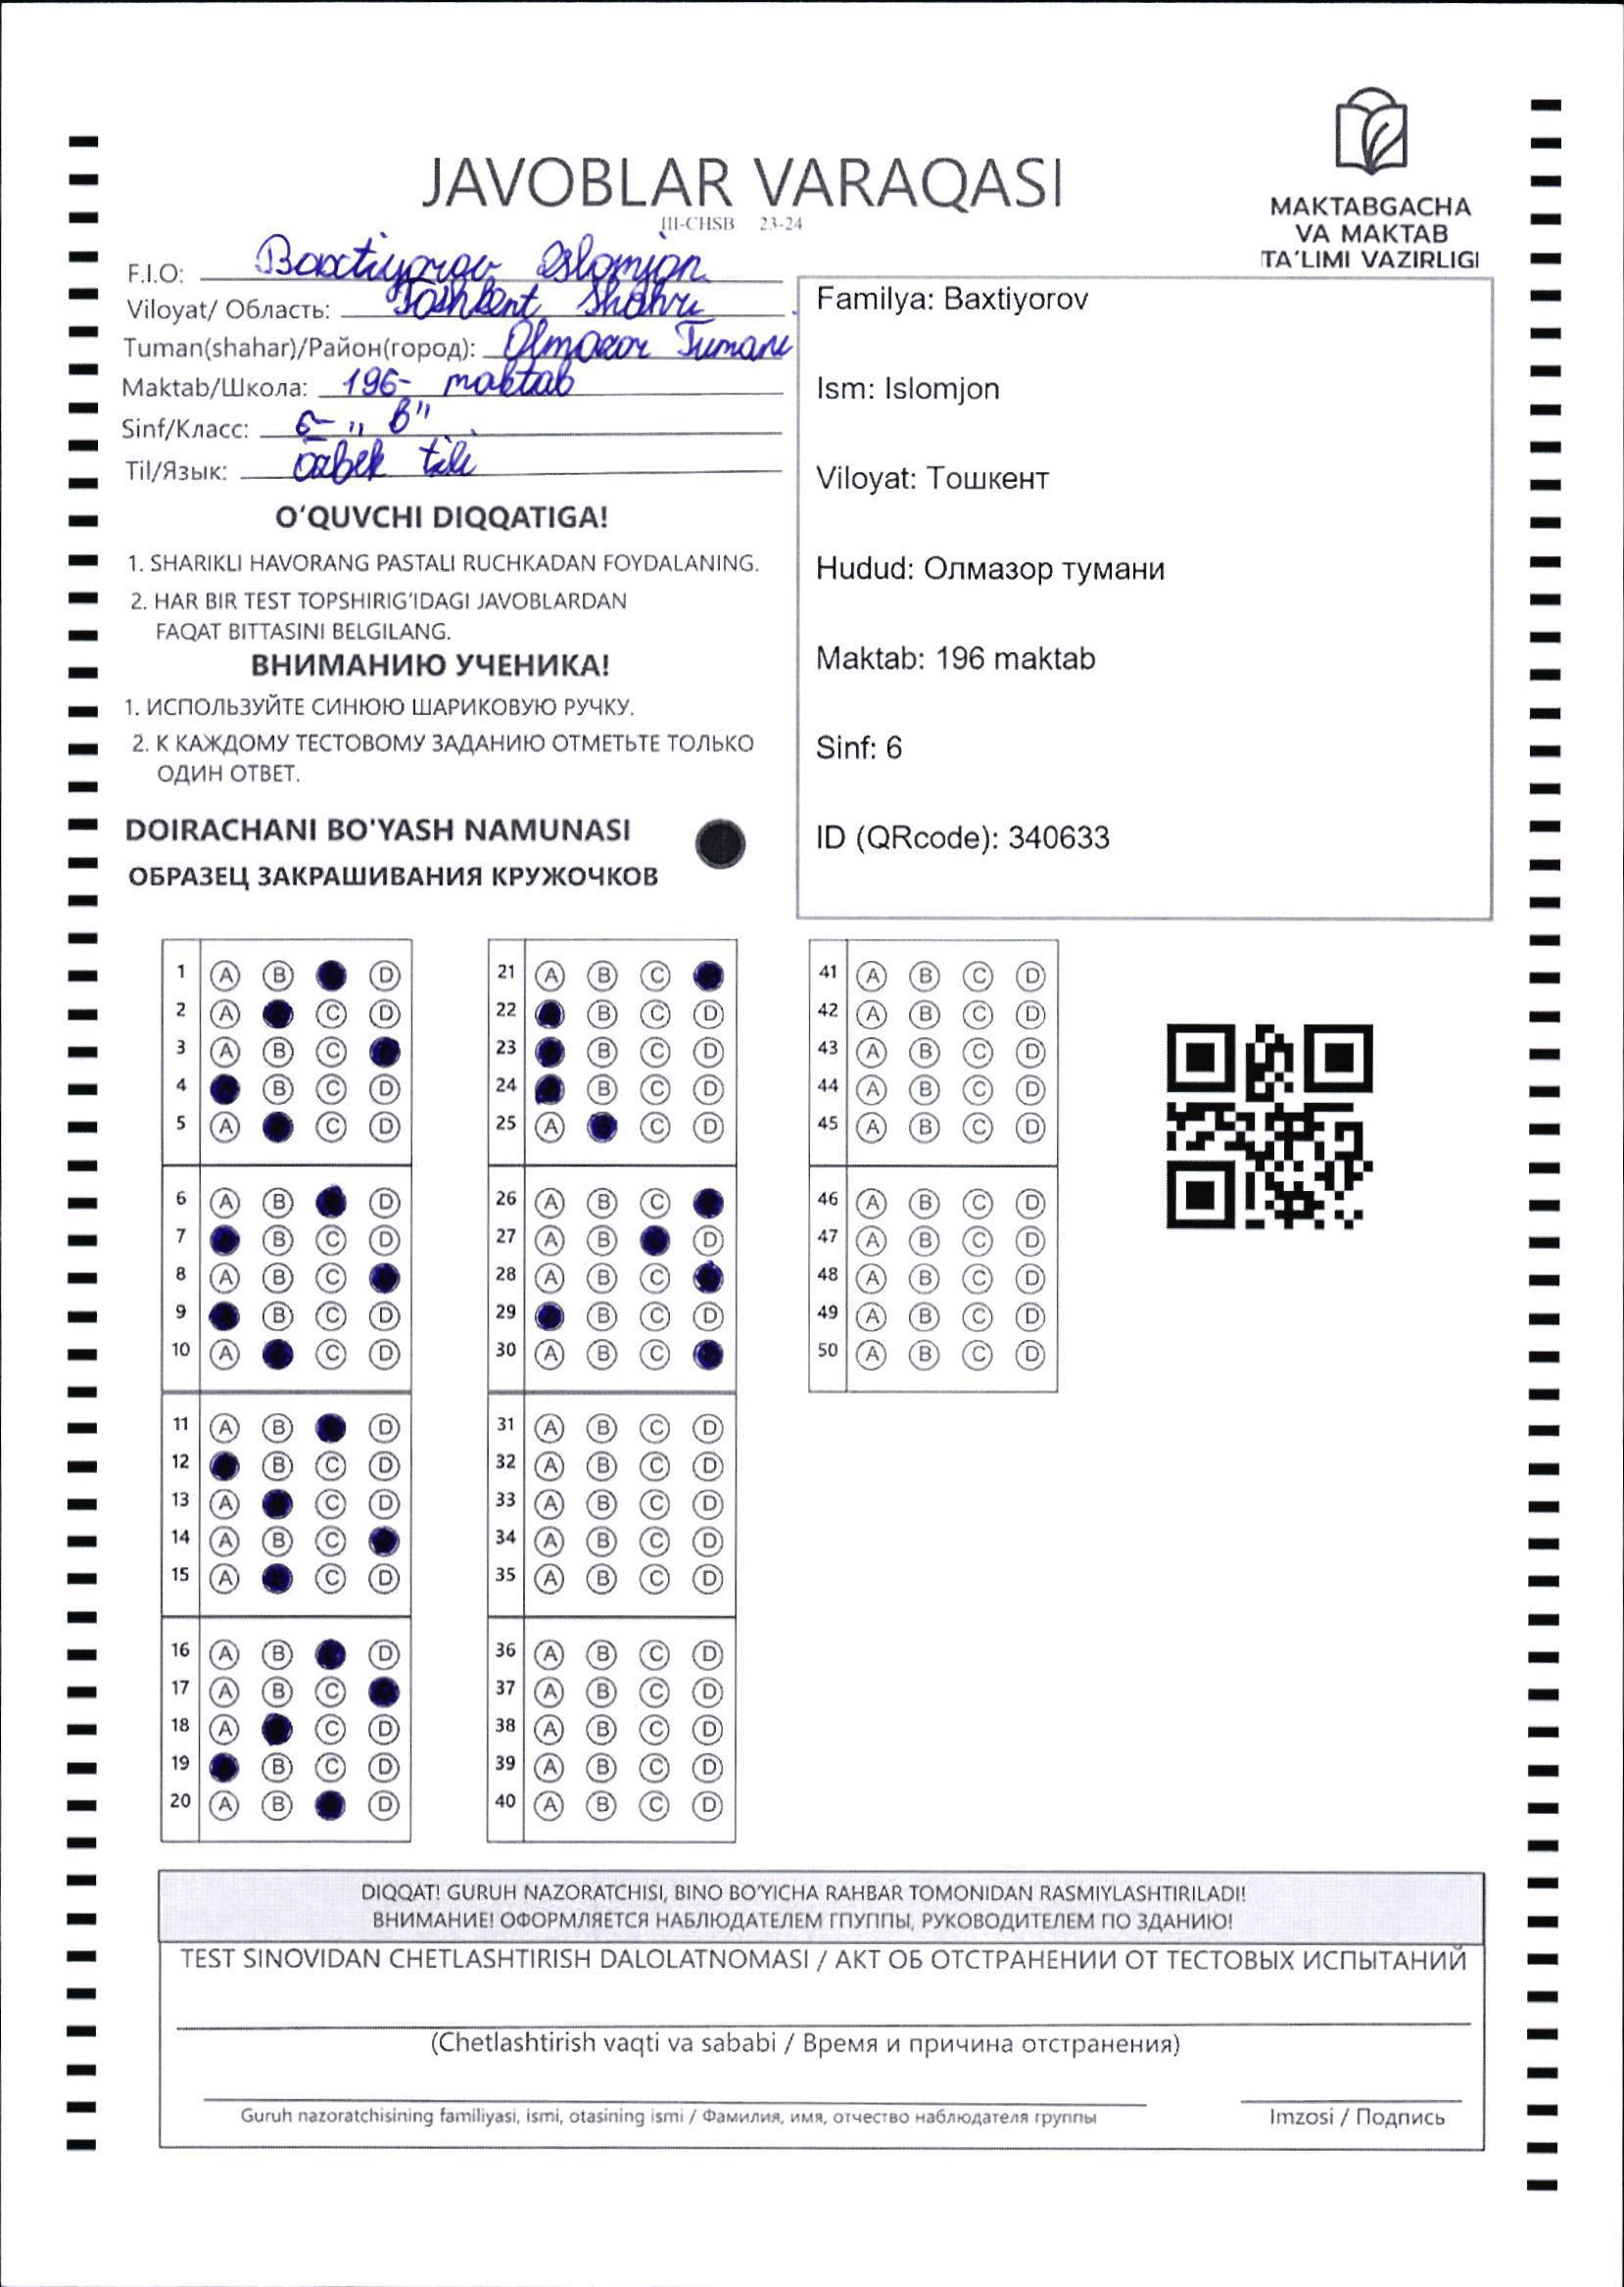 JAVOBLAR VARAQASI
III-CHSB 23-24
MAKTABGACHA
VA MAKTAB
TA'LIMI VAZIRLIGI
F.I.O: Baxtiyorov Islomjon
Viloyat/ Область: Toshkent Shahri
Tuman(shahar)/Район(город): Olmazor Tumani
Maktab/Школа: 196- maktab
Sinf/Класс: 6- „ B"
Til/Язык: Özbek tili
O'QUVCHI DIQQATIGA!
1. SHARIKLI HAVORANG PASTALI RUCHKADAN FOYDALANING.
2. HAR BIR TEST TOPSHIRIG'IDAGI JAVOBLARDAN
FAQAT BITTASINI BELGILANG.
ВНИМАНИЮ УЧЕНИКА!
1. ИСПОЛЬЗУЙТЕ СИНЮЮ ШАРИКОВУЮ РУЧКУ.
2. К КАЖДОМУ ТЕСТОВОМУ ЗАДАНИЮ ОТМЕТЬТЕ ТОЛЬКО
ОДИН ОТВЕТ.
DOIRACHANI BO'YASH NAMUNASI
ОБРАЗЕЦ ЗАКРАШИВАНИЯ КРУЖОЧКОВ
Familya: Baxtiyorov
Ism: Islomjon
Viloyat: Тошкент
Hudud: Олмазор тумани
Maktab: 196 maktab
Sinf: 6
ID (QRcode): 340633
1 A B D
2 A C D
3 A B C
4 B C D
5 A C D
6 A B D
7 B C D
8 A B C
9 B C D
10 A C D
11 A B D
12 B C D
13 A C D
14 A B C
15 A C D
16 A B D
17 A B C
18 A C D
19 B C D
20 A B D
21 A B C
22 B C D
23 B C D
24 B C D
25 A C D
26 A B C
27 A B D
28 A B C
29 B C D
30 A B C
31 A B C D
32 A B C D
33 A B C D
34 A B C D
35 A B C D
36 A B C D
37 A B C D
38 A B C D
39 A B C D
40 A B C D
41 A B C D
42 A B C D
43 A B C D
44 A B C D
45 A B C D
46 A B C D
47 A B C D
48 A B C D
49 A B C D
50 A B C D
DIQQAT! GURUH NAZORATCHISI, BINO BO'YICHA RAHBAR TOMONIDAN RASMIYLASHTIRILADI!
ВНИМАНИЕ! ОФОРМЛЯЕТСЯ НАБЛЮДАТЕЛЕМ ГПУППЫ, РУКОВОДИТЕЛЕМ ПО ЗДАНИЮ!
TEST SINOVIDAN CHETLASHTIRISH DALOLATNOMASI / АКТ ОБ ОТСТРАНЕНИИ ОТ ТЕСТОВЫХ ИСПЫТАНИЙ
(Chetlashtirish vaqti va sababi / Время и причина отстранения)
Guruh nazoratchisining familiyasi, ismi, otasining ismi / Фамилия, имя, отчество наблюдателя группы
Imzosi / Подпись